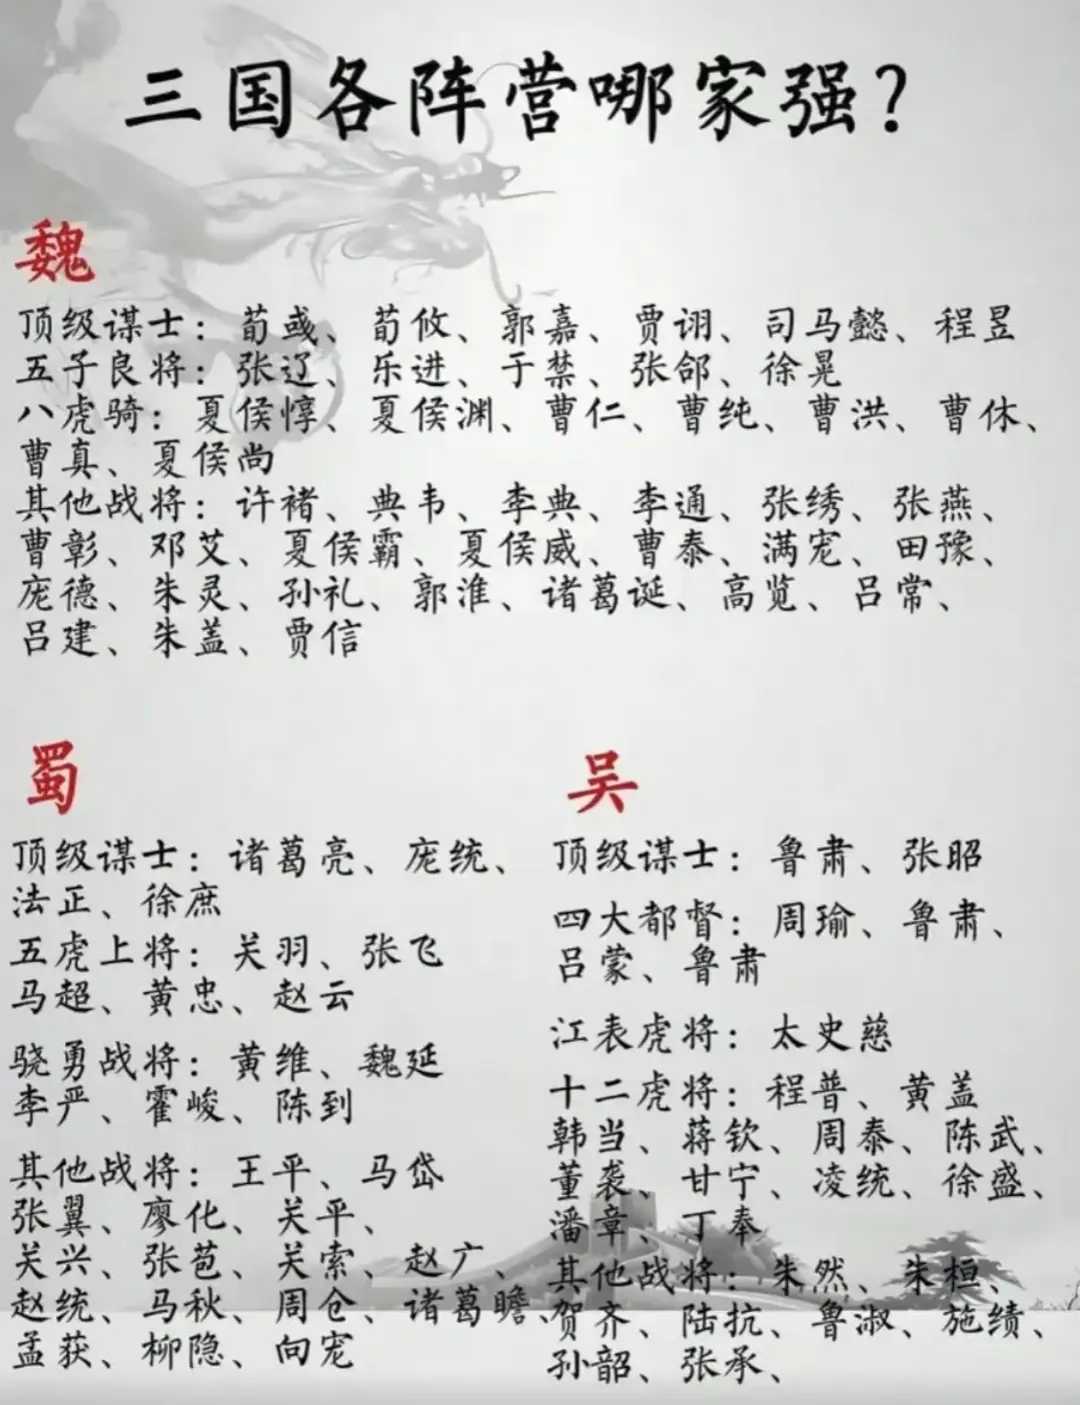 三国各阵营哪家强?
魏
顶级谋士：荀彧、荀攸、郭嘉、贾诩、司马懿、程昱
五子良将：张辽、乐进、于禁、张郃、徐晃
八虎骑：夏侯惇、夏侯渊、曹仁、曹纯、曹洪、曹休、
曹真、夏侯尚
其他战将：许褚、典韦、李典、李通、张绣、张燕、
曹彰、邓艾、夏侯霸、夏侯威、曹泰、满宠、田豫、
庞德、朱灵、孙礼、郭淮、诸葛诞、高览、吕常、
吕建、朱盖、贾信
蜀
顶级谋士：诸葛亮、庞统、
法正、徐庶
五虎上将：关羽、张飞
马超、黄忠、赵云
骁勇战将：黄维、魏延
李严、霍峻、陈到
其他战将：王平、马岱
张翼、廖化、关平、
关兴、张苞、关索、赵广、
赵统、马秋、周仓、诸葛瞻、
孟获、柳隐、向宠
吴
顶级谋士：鲁肃、张昭
四大都督：周瑜、鲁肃、
吕蒙、鲁肃
江表虎将：太史慈
十二虎将：程普、黄盖
韩当、蒋钦、周泰、陈武、
董袭、甘宁、凌统、徐盛、
潘章、丁奉
其他战将：朱然、朱桓、
贺齐、陆抗、鲁淑、施绩、
孙韶、张承、